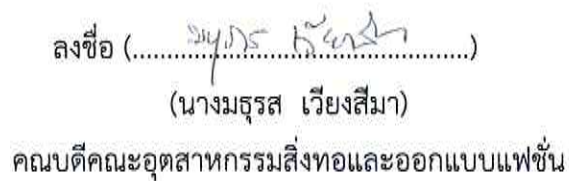 ลงชื่อ (......มธุรส เวียงสีมา......)
(นางมธุรส เวียงสีมา)
คณบดีคณะอุตสาหกรรมสิ่งทอและออกแบบแฟชั่น